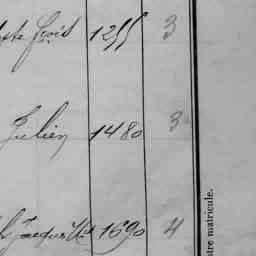 1255 3
Julien 1480 3
Jacques 1690 4
tre matricule.